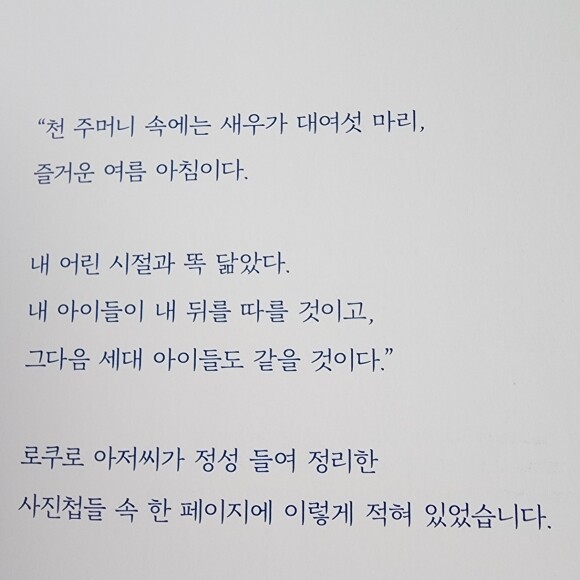 “천 주머니 속에는 새우가 대여섯 마리,
즐거운 여름 아침이다.
내 어린 시절과 똑 닮았다.
내 아이들이 내 뒤를 따를 것이고,
그다음 세대 아이들도 같을 것이다.”
로쿠로 아저씨가 정성 들여 정리한
사진첩들 속 한 페이지에 이렇게 적혀 있었습니다.